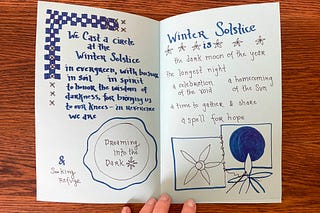 We Cast a circle
at the
Winter Solstice
in evergreen, with
in soil in spirit
to honor the wisdom of
darkness, for bringing us
to our knees – in reverence
we are
Dreaming
into the
Dark
&
Seeking
Refuge
Winter Solstice
is
the dark moon of the year
the longest night
a celebration
of the void
a homecoming
of the Sun
a time to gather & share
a spell for hope